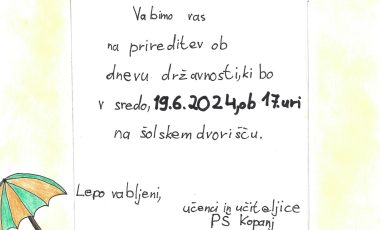 Vabimo vas
na prireditev ob
dnevu državnosti,ki bo
v sredo, 19.6.2024,ob 17.uri
na šolskem dvorišču.
Lepo vabljeni,
učenci in učiteljice
PŠ Kopanj